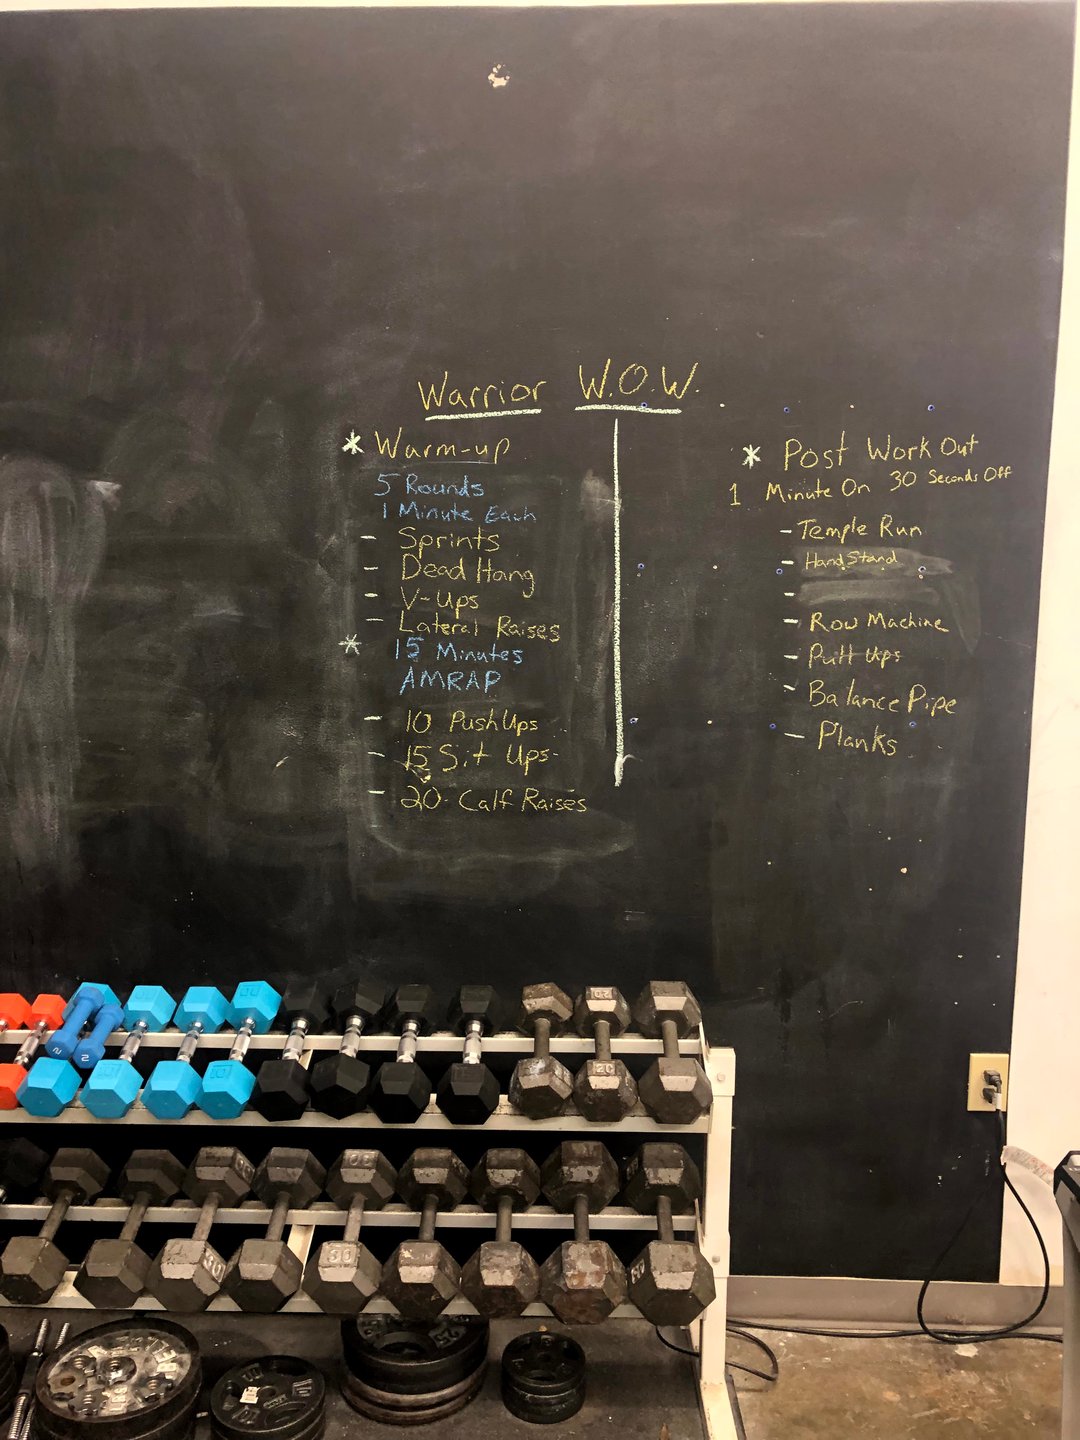 Warrior W.O.W.
* Warm-up
5 Rounds
1 Minute Each
- Sprints
- Dead Hang
- V-Ups
- Lateral Raises
* 15 Minutes
AMRAP
- 10 Push Ups
- 15 Sit Ups
- 20 Calf Raises
* Post Work Out
1 Minute On 30 Seconds Off
- Temple Run
- Hand Stand
-
- Row Machine
- Pull Ups
- Balance Pipe
- Planks
2
2
20
20
30
30